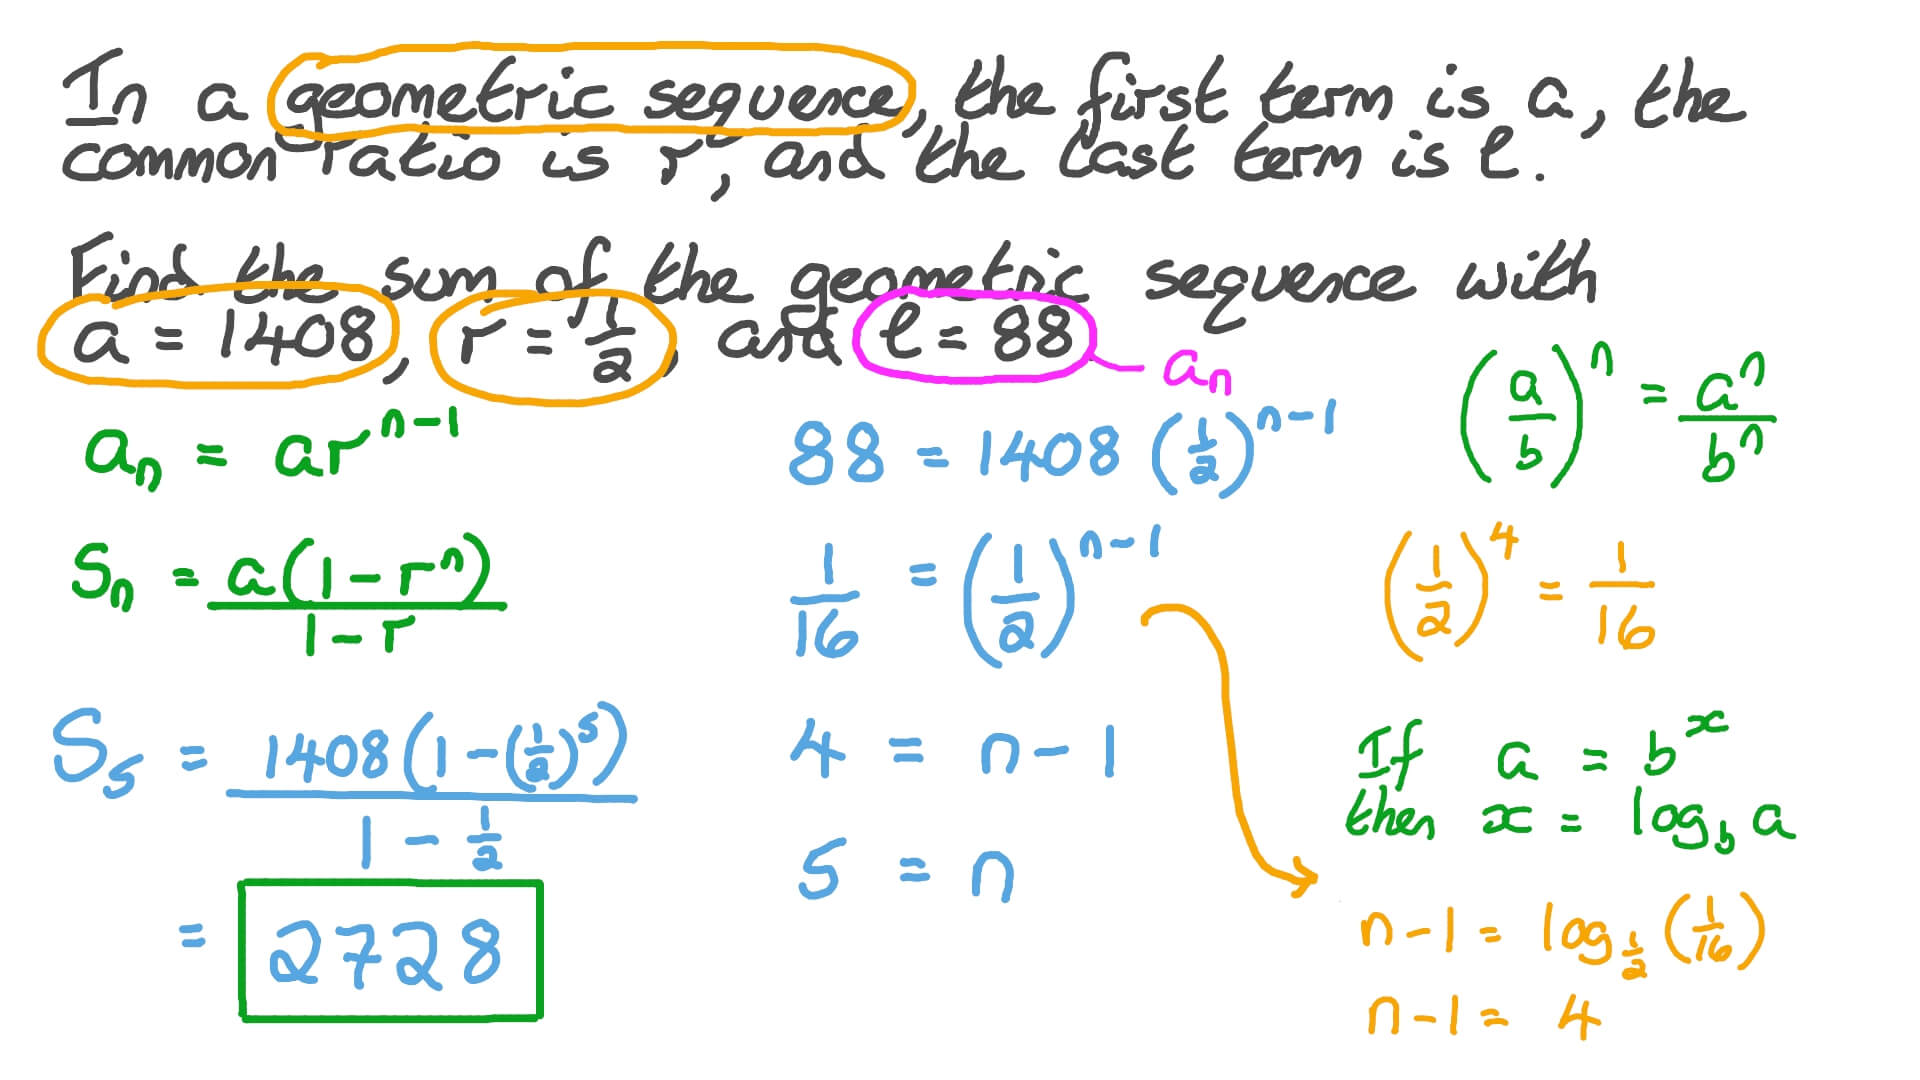 In a geometric sequence, the first term is a, the
common ratio is r, and the last term is ℓ.
Find the sum of the geometric sequence with
a = 1408, r = 1/2, and ℓ = 88
aₙ
aₙ = arⁿ⁻¹
Sₙ = a(1 - rⁿ) / 1 - r
S₅ = 1408(1 - (1/2)⁵) / 1 - 1/2
= 2728
88 = 1408 (1/2)ⁿ⁻¹
1/16 = (1/2)ⁿ⁻¹
4 = n - 1
5 = n
(a/b)ⁿ = aⁿ/bⁿ
(1/2)⁴ = 1/16
If a = bˣ
then x = log_b a
n - 1 = log_1/2 (1/16)
n - 1 = 4